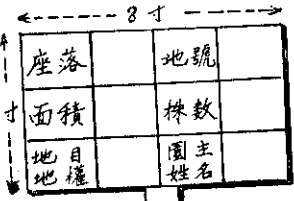 8寸
4寸
座落
地號
面積
株数
地目
地權
園主
姓名